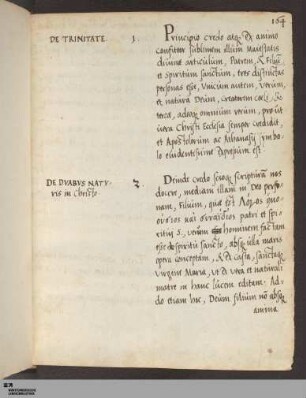 164
DE TRINITATE 1.
Principio credo atq; ex animo
confiteor sublimem illum Maiestatis
divinę articulum, Patrem, & Filiũ,
et spiritum sanctum, tres distinctas
personas esse, Vnicum autem, verum,
et naturâ Deum, creatorem coeli,
terrae, adeoq; omnium rerum, prout
uniuersa Christi Ecclesia semper credidit,
et Apostolorum ac Athanasij symbo
lo euidentissime expressum est.
DE DVABVS NATV
ris in Christo. 2.
Deinde credo scioq; scripturam nos
docere, mediam illam in Deo perso
nam, Filium, qui est Λόγος
patri et spi
ritui s., verum hominem factum
esse de spiritu sancto, absq; ulla maris
opera conceptum, & ex casta, sanctaq;
virgine Maria, ut ex vera et naturali
matre in hanc lucem editum. Ad
do etiam hic, Deum filium nõ absq;
anima